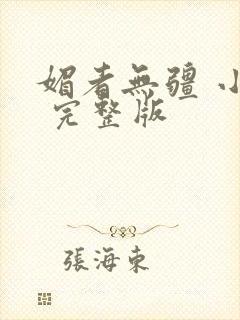 媚者無疆 小
完整版
張海東